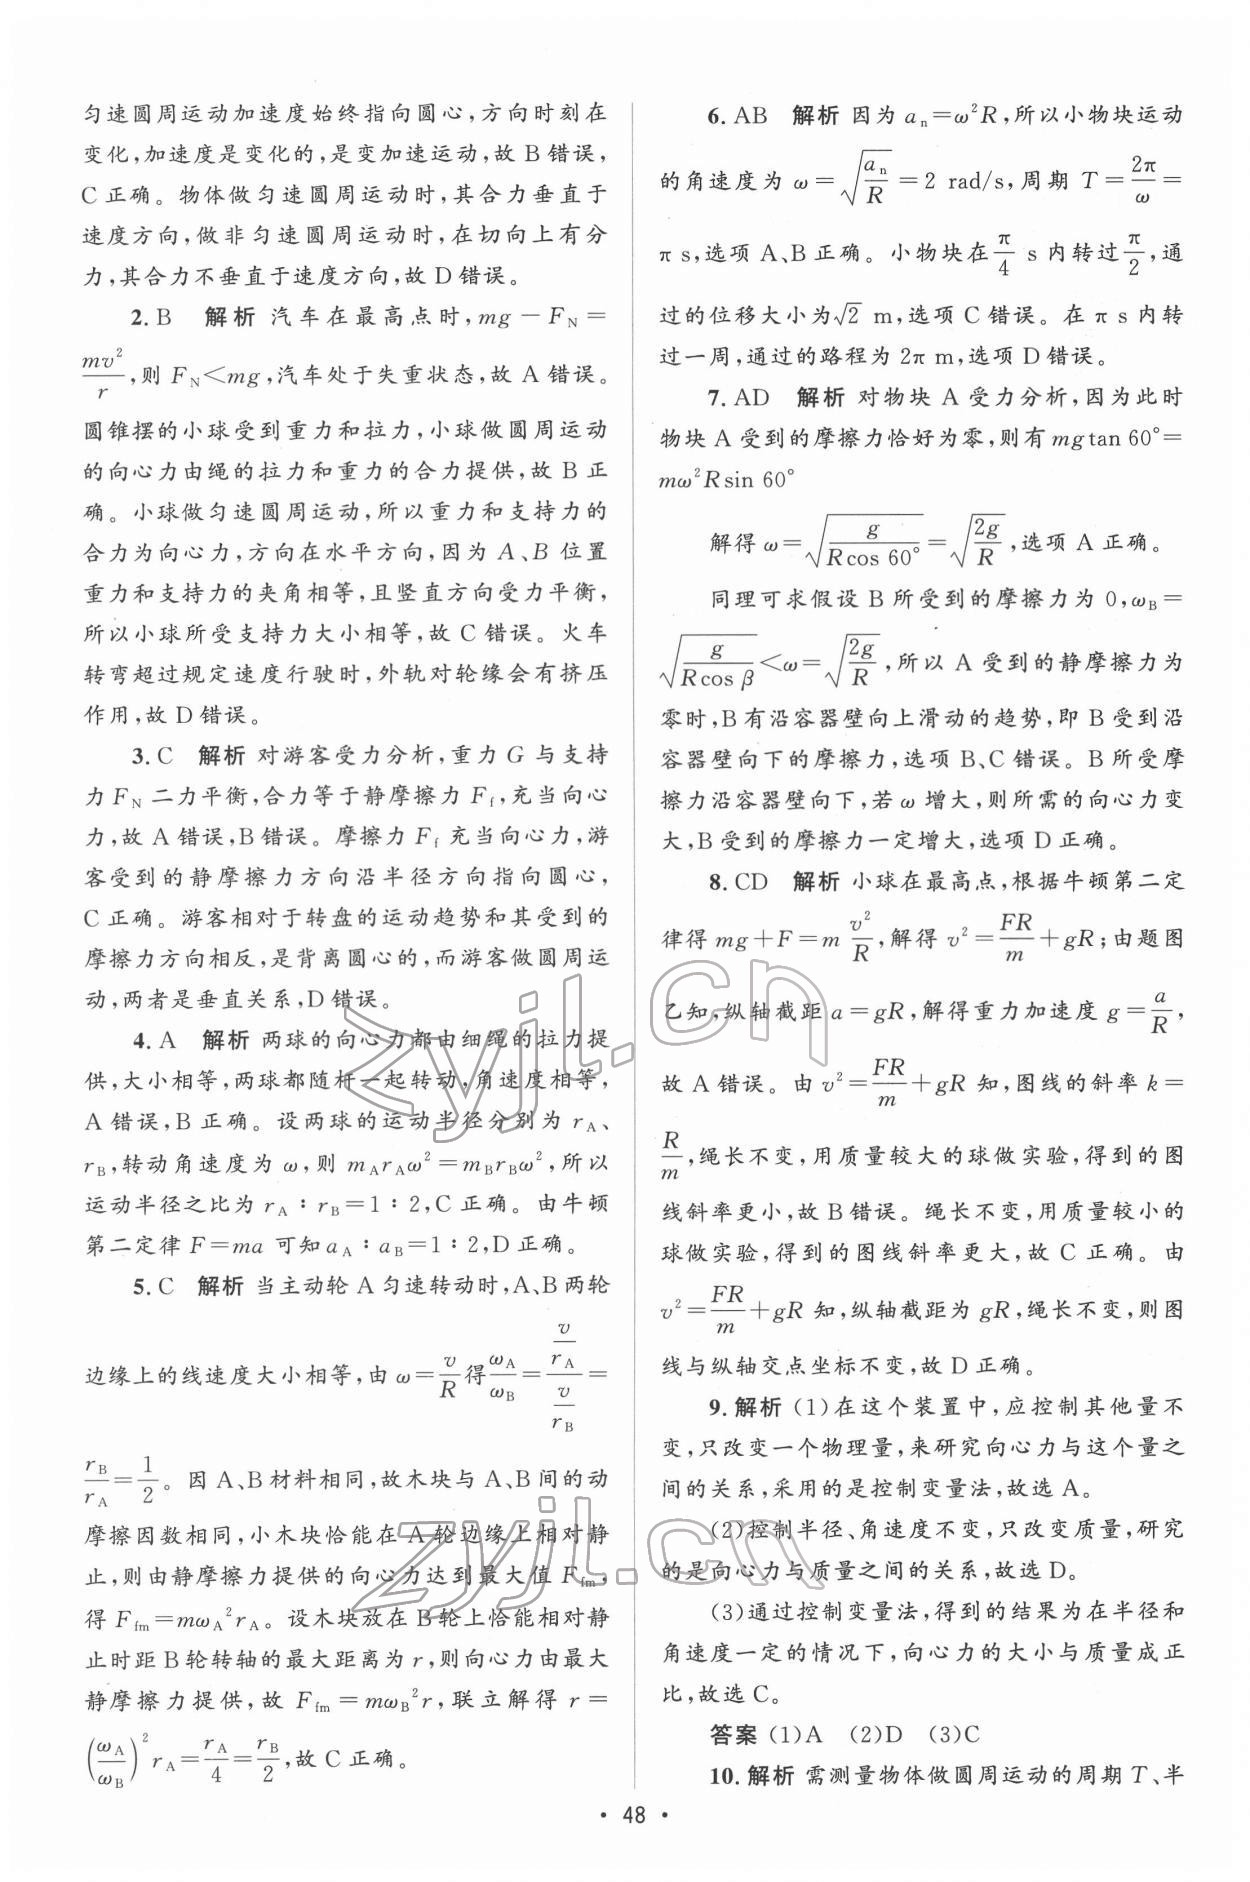 匀速圆周运动加速度始终指向圆心,方向时刻在
变化,加速度是变化的,是变加速运动,故 B 错误,
C 正确。物体做匀速圆周运动时,其合力垂直于
速度方向,做非匀速圆周运动时,在切向上有分
力,其合力不垂直于速度方向,故 D 错误。
2. B 解析 汽车在最高点时,mg－F_N＝
mv²/r,则 F_N＜mg,汽车处于失重状态,故 A 错误。
圆锥摆的小球受到重力和拉力,小球做圆周运动
的向心力由绳的拉力和重力的合力提供,故 B 正
确。小球做匀速圆周运动,所以重力和支持力的
合力为向心力,方向在水平方向,因为 A、B 位置
重力和支持力的夹角相等,且竖直方向受力平衡,
所以小球所受支持力大小相等,故 C 错误。火车
转弯超过规定速度行驶时,外轨对轮缘会有挤压
作用,故 D 错误。
3. C 解析 对游客受力分析,重力 G 与支持
力 F_N 二力平衡,合力等于静摩擦力 F_f,充当向心
力,故 A 错误,B 错误。摩擦力 F_f 充当向心力,游
客受到的静摩擦力方向沿半径方向指向圆心,
C 正确。游客相对于转盘的运动趋势和其受到的
摩擦力方向相反,是背离圆心的,而游客做圆周运
动,两者是垂直关系,D 错误。
4. A 解析 两球的向心力都由细绳的拉力提
供,大小相等,两球都随杆一起转动,角速度相等,
A 错误,B 正确。设两球的运动半径分别为 r_A、
r_B,转动角速度为 ω,则 m_A r_A ω²＝m_B r_B ω²,所以
运动半径之比为 r_A∶r_B＝1∶2,C 正确。由牛顿
第二定律 F＝ma 可知 a_A∶a_B＝1∶2,D 正确。
5. C 解析 当主动轮 A 匀速转动时,A、B 两轮
边缘上的线速度大小相等,由 ω＝v/R 得 ω_A/ω_B＝(v/r_A)/(v/r_B)＝
r_B/r_A＝1/2。因 A、B 材料相同,故木块与 A、B 间的动
摩擦因数相同,小木块恰能在 A 轮边缘上相对静
止,则由静摩擦力提供的向心力达到最大值 F_fm,
得 F_fm＝mω_A²r_A。设木块放在 B 轮上恰能相对静
止时距 B 轮转轴的最大距离为 r,则向心力由最大
静摩擦力提供,故 F_fm＝mω_B²r,联立解得 r＝
(ω_A/ω_B)²r_A＝r_A/4＝r_B/2,故 C 正确。
6. AB 解析 因为 a_n＝ω²R,所以小物块运动
的角速度为 ω＝√(a_n/R)＝2 rad/s,周期 T＝2π/ω＝
π s,选项 A、B 正确。小物块在 π/4 s 内转过 π/2,通
过的位移大小为√2 m,选项 C 错误。在 π s 内转
过一周,通过的路程为 2π m,选项 D 错误。
7. AD 解析 对物块 A 受力分析,因为此时
物块 A 受到的摩擦力恰好为零,则有 mgtan 60°＝
mω²Rsin 60°
解得 ω＝√(g/(Rcos 60°))＝√(2g/R),选项 A 正确。
同理可求假设 B 所受到的摩擦力为 0,ω_B＝
√(g/(Rcos β))＜ω＝√(2g/R),所以 A 受到的静摩擦力为
零时,B 有沿容器壁向上滑动的趋势,即 B 受到沿
容器壁向下的摩擦力,选项 B、C 错误。B 所受摩
擦力沿容器壁向下,若 ω 增大,则所需的向心力变
大,B 受到的摩擦力一定增大,选项 D 正确。
8. CD 解析 小球在最高点,根据牛顿第二定
律得 mg＋F＝m v²/R,解得 v²＝FR/m＋gR;由题图
乙知,纵轴截距 a＝gR,解得重力加速度 g＝a/R,
故 A 错误。由 v²＝FR/m＋gR 知,图线的斜率 k＝
R/m,绳长不变,用质量较大的球做实验,得到的图
线斜率更小,故 B 错误。绳长不变,用质量较小的
球做实验,得到的图线斜率更大,故 C 正确。由
v²＝FR/m＋gR 知,纵轴截距为 gR,绳长不变,则图
线与纵轴交点坐标不变,故 D 正确。
9. 解析 (1)在这个装置中,应控制其他量不
变,只改变一个物理量,来研究向心力与这个量之
间的关系,采用的是控制变量法,故选 A。
(2)控制半径、角速度不变,只改变质量,研究
的是向心力与质量之间的关系,故选 D。
(3)通过控制变量法,得到的结果为在半径和
角速度一定的情况下,向心力的大小与质量成正
比,故选 C。
答案 (1)A (2)D (3)C
10. 解析 需测量物体做圆周运动的周期 T、半
• 48 •
zyjl.cn
zyjl.cn